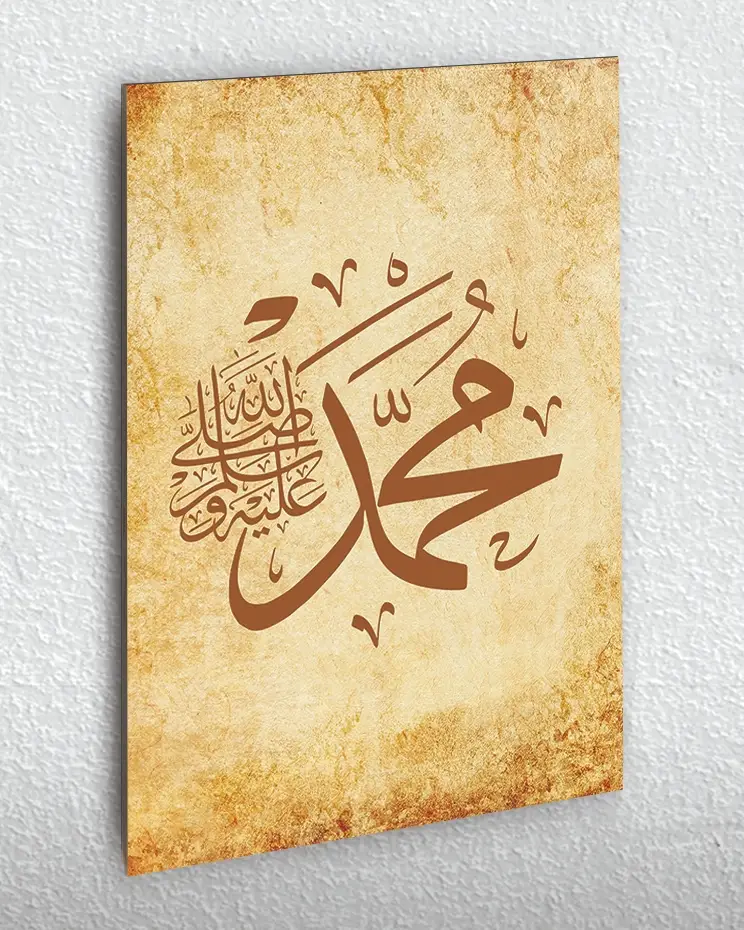 مُحَمَّد
صَلَّى اللَّٰه عليه وسلم